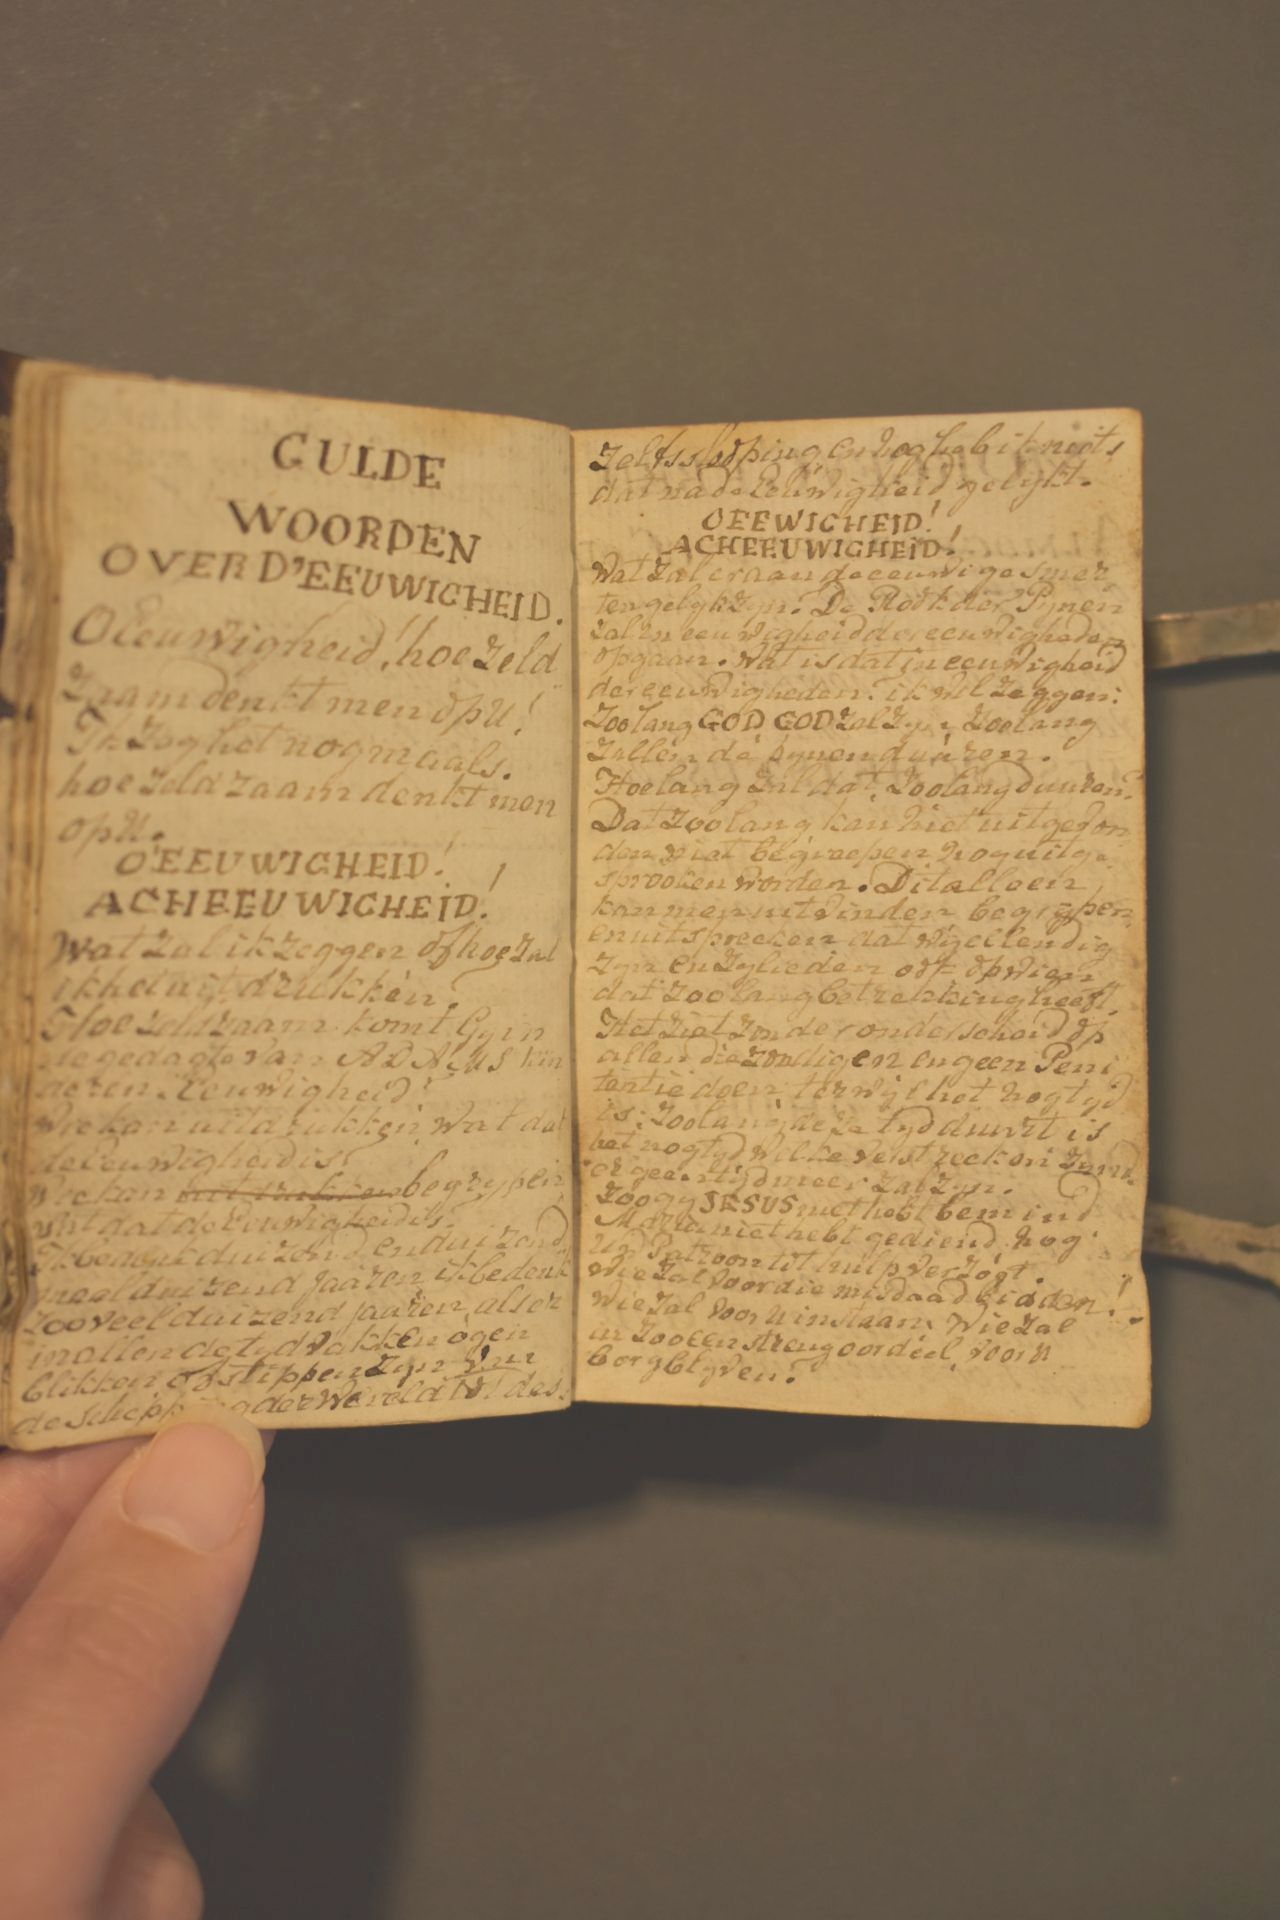 GULDE
WOORDEN
OVER D'EEUWIGHEID.
O Eeuwigheid! hoe zeld
zaam denkt men op U!
Ik zeg het nogmaals.
hoe zeldzaam denkt men
op U.
O EEUWIGHEID!
ACH EEUWIGHEID!
Wat zal ik zeggen of hoe zal
ik het uitdrukken.
Hoe zeldzaam komt Gy in
de gedagte van ADAMS kin
deren Eeuwigheid!
Wie kan uitdrukken, wat dat
de Eeuwigheid is!
Wie kan uit drukken begrypen
wat dat de Eeuwigheid is.
Ik bedenk duizend en duizend
maal duizend Jaaren ik bedenk
zooveel duizend Jaaren, als er
in allen de tydvakken ogen
blikken of stippen zyn van
de schepping der Wereld tot des
zelfs en nog heb ik niets
dat na de Eeuwigheid gelykt.
O EEWIGHEID!
ACH EEUWIGHEID!
Wat zal er aan de eeuwige smer
ten gelyk zyn. De Rook der Pynen
zal in eeuwigheid der eeuwigheden
opgaan. Wat is dat in eeuwigheid
der eeuwigheden. ik wil zeggen:
Zoolang GOD GOD zal zyn, zoolang
zullen de pynen duuren.
Hoelang zal dat, zoolang duuren?
Dat zoolang kan niet uitgevon
den niet begreepen nog uitge
sprooken worden. Dit alleen
kan men uitvinden begrypen
en uitspreeken dat wy ellendig
zyn en zylieden ook op wien
dat zoolang betrekking heeft.
Het ziet zonder onderscheid op
allen die zondigen en geen Peni
tentie doen, terwyl het nog tyd
is: zoolang deze tyd duurt is
het nog tyd welke verstreeken zynde
er geen tyd meer zal zyn.
Zoo gy JESUS niet hebt bemind
Maria niet hebt gediend nog
Uw Patroon tot hulp verzogt.
Wie zal voor die misdaad bidden!
Wie zal voor U instaan, Wie zal
in zoo een streng oordeel, voor U
borg blyven?